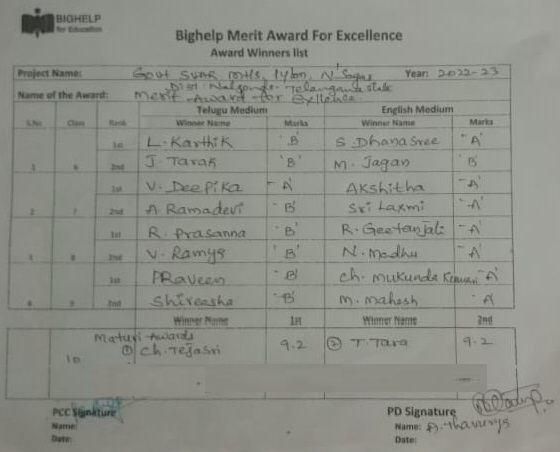 BIGHELP
for Education
Bighelp Merit Award For Excellence
Award Winners list
Project Name: Govt SVAR , Pylon, N. Sagar Year: 2022-23
Dist: Nalgonda - Telangana state
Name of the Award: Merit Award for Exllence
Telugu Medium English Medium
S.No Class Rank Winner Name Marks Winner Name Marks
1st L. Karthik 'B' S. Dhanasree 'A'
1 6 2nd J. Tarak 'B' M. Jagan 'B'
1st V. Deepika 'A' Akshitha 'A'
2 7 2nd A. Ramadevi 'B' Sri Laxmi 'A'
1st R. Prasanna 'B' R. Geetanjali 'A'
3 8 2nd V. Ramya 'B' N. Madhu 'A'
1st PRaveen 'B' Ch. Mukunda Kumari 'A'
4 9 2nd Shireesha 'B' M. Mahesh 'A'
Winner Name 1st Winner Name 2nd
Maturi Awards
10 ① Ch. Tejasri 9.2 ② T. Tara 9.2
PCC Signature PD Signature
Name: Name: A.
Date: Date: